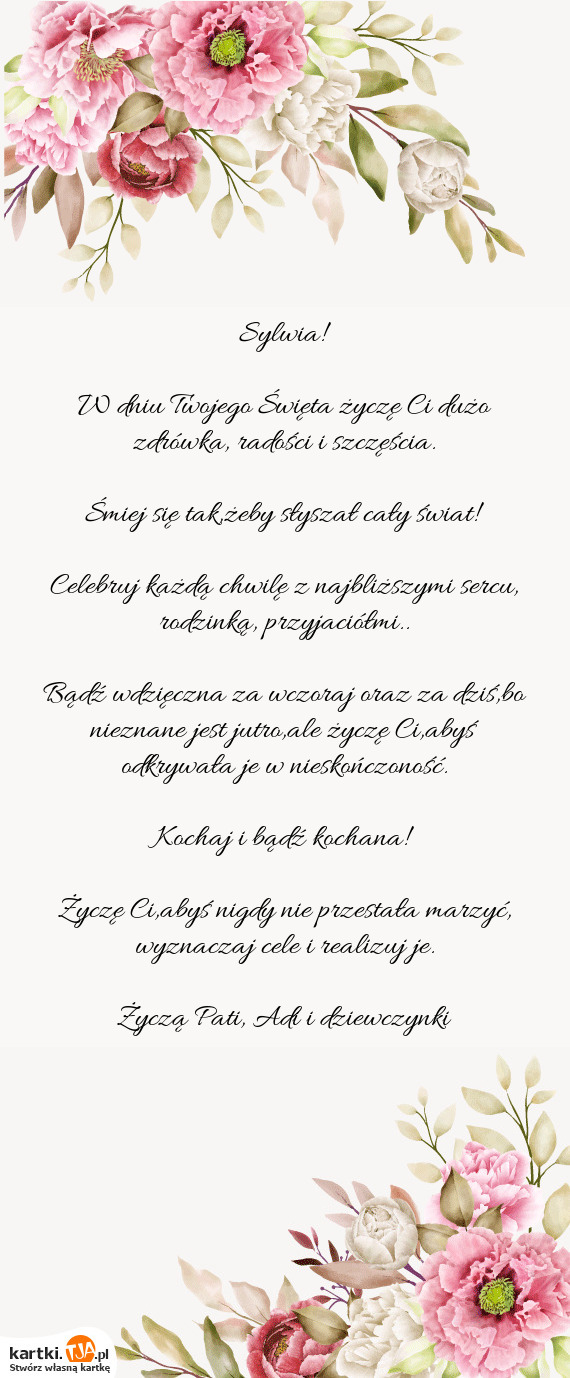 Sylwia!
W dniu Twojego Święta życzę Ci dużo
zdrówka, radości i szczęścia.
Śmiej się tak,żeby słyszał cały świat!
Celebruj każdą chwilę z najbliższymi sercu,
rodzinką, przyjaciółmi..
Bądź wdzięczna za wczoraj oraz za dziś,bo
nieznane jest jutro,ale życzę Ci,abyś
odkrywała je w nieskończoność.
Kochaj i bądź kochana!
Życzę Ci,abyś nigdy nie przestała marzyć,
wyznaczaj cele i realizuj je.
Życzą Pati, Adi i dziewczynki
kartki.TJA.pl
Stwórz własną kartkę